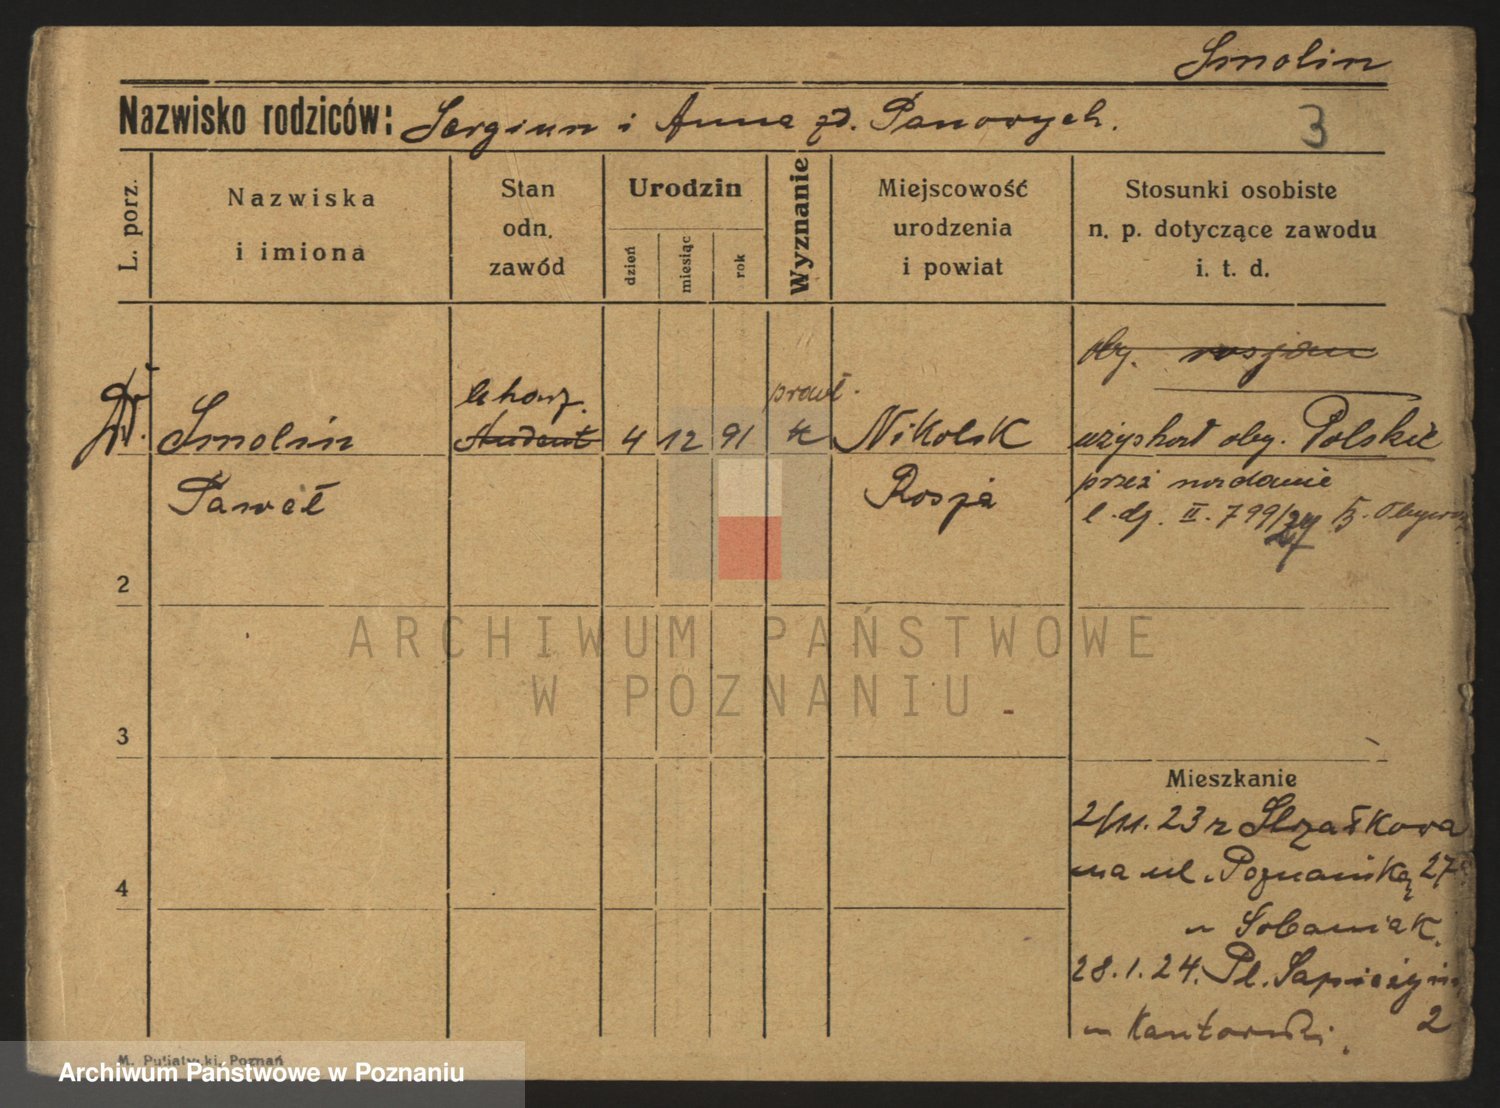 Smolin
Nazwisko rodziców: Sergiusz i Anna zd. Panowych.
3
L. porz.
Nazwiska
i imiona
Stan
odn.
zawód
Urodzin
dzień
miesiąc
rok
Wyznanie
Miejscowość
urodzenia
i powiat
Stosunki osobiste
n. p. dotyczące zawodu
i. t. d.
oby. rosjan
Dr.
Smolin
lekarz.
Student
4 12 91
prawł.
k
Nikolsk
uzyskał oby. Polskie
Paweł
Rosja
przez nadanie
l. dz. II. 799/24
2
ARCHIWUM PAŃSTWOWE
W POZNANIU
3
Mieszkanie
2/11. 23 z Strzałkowa
na ul. Poznańską 27
4
u Sobaniak.
28.1.24. Pl. Sapieżyń
u Kantorski. 2
M. Putiatycki, Poznań
Archiwum Państwowe w Poznaniu